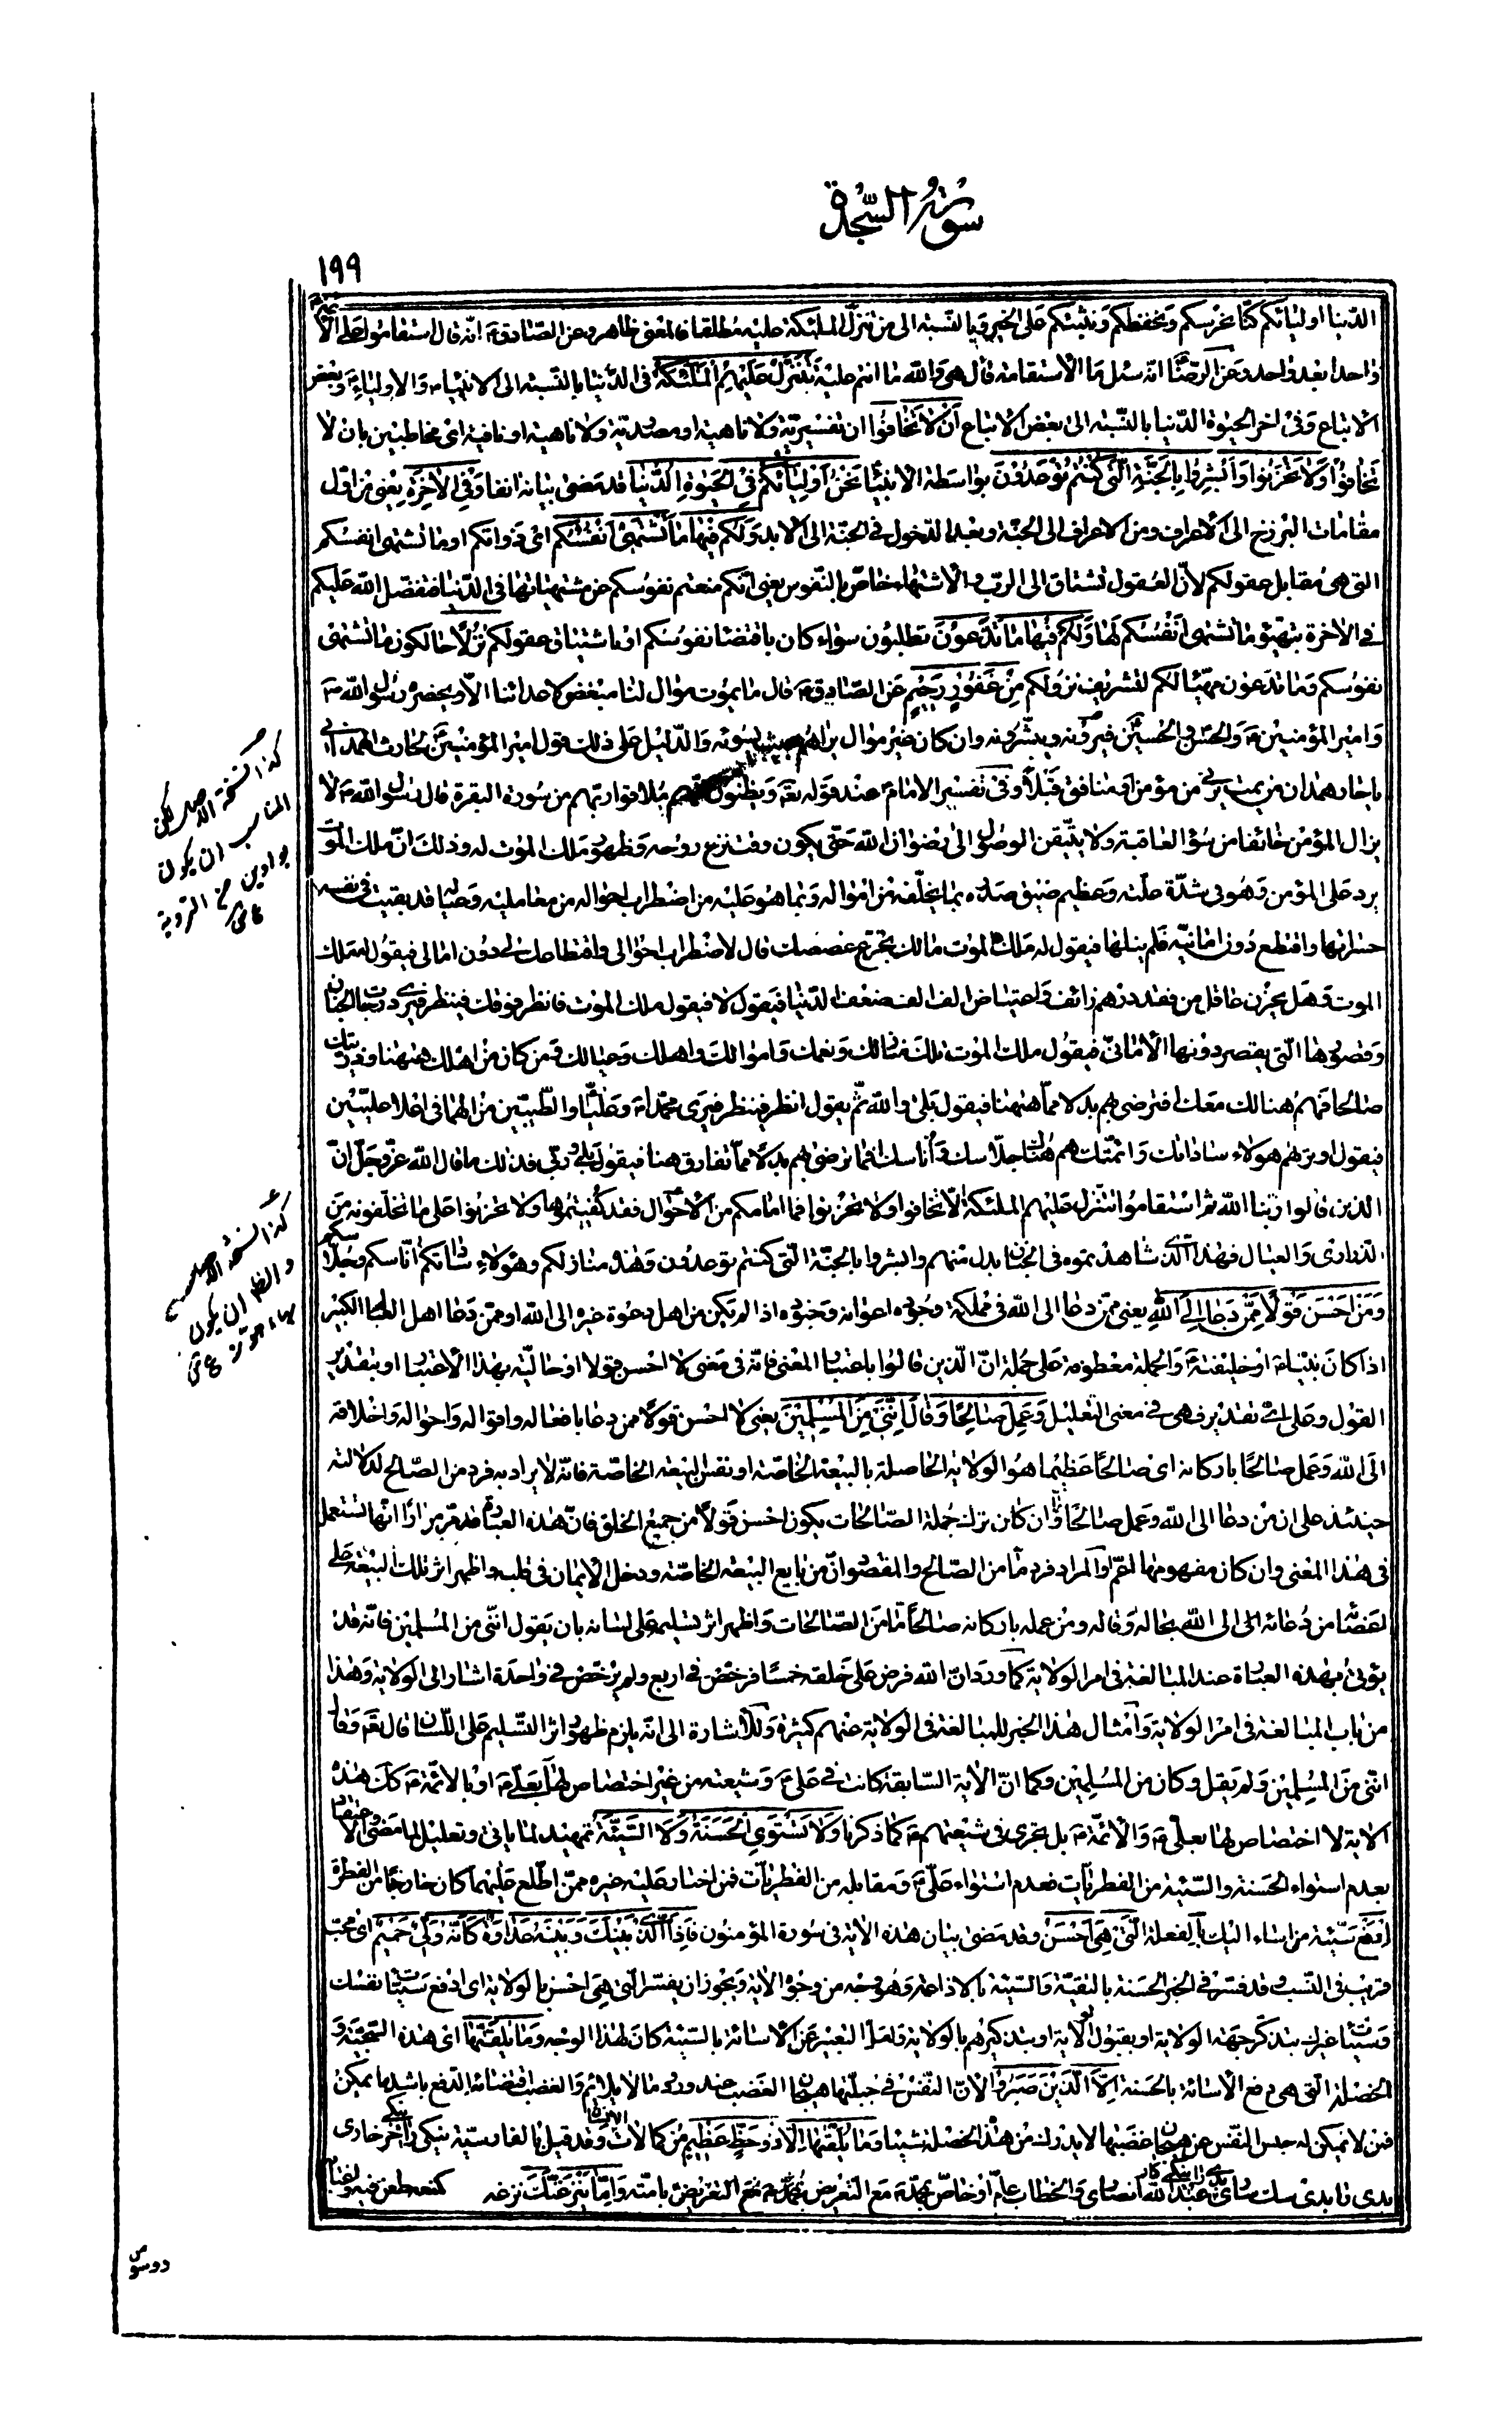 سورة السجدة
١٩٩
الدنيا اوليائكم كنّا نحرسكم ونحفظكم ونثبتكم على الخير وبالنسبة الى من تنزّل الملئكة عليه مطلقا فالمعنى ظاهر وعن الصادق ع انه قال استقاموا على الائمة
واحدا بعد واحد وعن الرضا ع انه سئل ما الاستقامة قال هى والله ما انتم عليه تَتَنَزَّلُ عَلَيْهِمُ الْمَلٰئِكَةُ فى الدنيا بالنسبة الى الانبياء والاولياء ع وبعض
الاتباع وفى اخر الحيوة الدنيا بالنسبة الى بعض الاتباع اَنْ لا تَخافُوا ان تفسيرية ولا ناهية او مصدرية ولا ناهية او نافية اى مخاطبين بان لا
تَخافُوا وَلا تَحْزَنُوا وَاَبْشِرُوا بِالْجَنَّةِ الَّتى كُنْتُمْ تُوعَدُونَ بواسطة الانبياء نَحْنُ اَوْلِياؤُكُمْ فِى الْحَيوةِ الدُّنْيا قد مضى بيانه انفا وَفِى الْاخِرَةِ يعنى من اول
مقامات البرزخ الى الاعراف ومن الاعراف الى الجنة وبعد الدخول فى الجنة الى الابد وَلَكُمْ فيها ما تَشْتَهى اَنْفُسُكُمْ اى ذواتكم او ما تشتهى انفسكم
التى هى مقابل عقولكم لان العقول تشتاق الى الرب والاشتهاء خاص بالنفوس يعنى انكم منعتم نفوسكم عن مشتهياتها فى الدنيا فتفضل الله عليكم
فى الاخرة بتهيؤ ما تشتهى انفسكم لها وَلَكُمْ فيها ما تَدَّعُونَ تطلبون سواء كان باقتضاء نفوسكم او باشتياق عقولكم نُزُلًا حالكون ما تشتهى
نفوسكم وما تدعون مهيئا لكم لتشريف نزولكم مِنْ غَفُورٍ رَحيمٍ عن الصادق ع قال ما يموت موال لنا مبغض لاعدائنا الا ويحضره رسول الله ص
وامير المؤمنين ع والحسن والحسين ع فيرونه ويبشرونه وان كان غير موال يراهم بحيث يسوئه والدليل على ذلك قول امير المؤمنين ع لحارث الهمدانى
يا حار همدان من يمت يرنى من مؤمن او منافق قبلا وفى تفسير الامام ع عند قوله تعالى ويظنون انهم ملاقوا ربهم من سورة البقرة قال رسول الله ص لا
يزال المؤمن خائفا من سوء العاقبة ولا يتيقن الوصول الى رضوان الله حتى يكون وقت نزع روحه وظهور ملك الموت له وذلك ان ملك الموت
يرد على المؤمن وهو فى شدة علته وعظيم ضيق صدره بما يخلفه من امواله وبما هو عليه من اضطراب احواله من معامليه وعياله قد بقيت فى نفسه
حسراتها واقتطع دون امانيه فلم ينلها فيقول له ملك الموت مالك تتجرع غصصك قال لاضطراب احوالى واقتطاعك لى دون امالى فيقول له ملك
الموت وهل يحزن عاقل من فقد درهم زائف واعتياض الف الف ضعف الدنيا فيقول لا فيقول ملك الموت فانظر فوقك فينظر فيرى درجات الجنان
وقصورها التى يقصر دونها الامانى فيقول ملك الموت تلك منازلك ونعمك واموالك واهلك وعيالك ومن كان من اهلك ههنا وذريتك
صالحا فهم هنالك معك افترضى بهم بدلا مما ههنا فيقول بلى والله ثم يقول انظر فينظر فيرى محمدا ص وعليا والطيبين من الهما فى اعلا عليين
فيقول او تراهم هؤلاء ساداتك وائمتك هم هناك جلاسك واناسك افما ترضى بهم بدلا مما تفارق هنا فيقول بلى وربى فذلك ما قال الله عز وجل ان
الذين قالوا ربنا الله ثم استقاموا تتنزل عليهم الملئكة الا تخافوا ولا تحزنوا فما امامكم من الاحوال فقد كفيتموها ولا تحزنوا على ما تخلفونه من
الذرارى والعيال فهذا الذى شاهدتموه فى الجنان بدل منهم وابشروا بالجنة التى كنتم توعدون وهذه منازلكم وهؤلاء ساداتكم اناسكم وجلاسكم
وَمَنْ اَحْسَنُ قَوْلًا مِمَّنْ دَعا اِلَى اللهِ يعنى ممن دعا الى الله فى مملكة وجوده اعوانه وجنوده اذا لم يكن من اهل دعوة غيره الى الله او ممن دعا اهل العالم الكبير
اذا كان نبيا ص او خليفته ع والجملة معطوفة على جملة ان الذين قالوا باعتبار المعنى فانه فى معنى لا احسن قولا او حالية بهذا الاعتبار او بتقدير
القول وعلى اىّ تقدير فهى فى معنى التعليل وَعَمِلَ صالِحًا وَقالَ اِنَّنى مِنَ الْمُسْلِمينَ يعنى لا احسن قولا ممن دعا بافعاله واقواله واحواله واخلاقه
الى الله وعمل صالحا باركانه اى صالحا عظيما هو الولاية الحاصلة بالبيعة الخاصة او نفس البيعة الخاصة فانه لا يراد به فرد من الصالح لدلالته
حينئذ على ان من دعا الى الله وعمل صالحا وان كان ترك جملة الصالحات يكون احسن قولا من جميع الخلق فان هذه العبارة قد مر مرارا انها تستعمل
فى هذا المعنى وان كان مفهومها اعم والمراد فرد ما من الصالح والمقصود ان من بايع البيعة الخاصة ودخل الايمان فى قلبه واظهر اثر تلك البيعة على
اعضائه من دعائه الى الله بحاله وقاله ومن عمله باركانه صالحا ما من الصالحات واظهر اثر تسليمه على لسانه بان يقول اننى من المسلمين فانه قد
يؤتى بهذه العبارة عند المبالغة فى امر الولاية كما ورد ان الله فرض على خلقه خمسا فرخص فى اربع ولم يرخص فى واحدة اشار الى الولاية وهذا
من باب المبالغة فى امر الولاية وامثال هذا الخبر للمبالغة فى الولاية عنهم كثيرة وللاشارة الى انه يلزم ظهور اثر التسليم على اللسان قال تعالى وقال
اننى من المسلمين ولم يقل وكان من المسلمين وكما ان الاية السابقة كانت فى على ع وشيعته من غير اختصاص لها بعلى ع او بالائمة ع كان هذه
الاية لا اختصاص لها بعلى ع والائمة ع بل تجرى فى شيعتهم كما ذكرنا وَلا تَسْتَوِى الْحَسَنَةُ وَلَا السَّيِّئَةُ تمهيد لما يأتى وتعليل لما مضى
بعدم استواء الحسنة والسيئة من الفطريات فعدم استواء على ع ومقابله من الفطريات فمن اختار عليه غيره ممن اطلع عليهما كان خارجا من الفطرة
اِدْفَعْ سيئة من اساء اليك بالفعلة الَّتى هِىَ اَحْسَنُ وقد مضى بيان هذه الاية فى سورة المؤمنون فَاِذَا الَّذى بَيْنَكَ وَبَيْنَهُ عَداوَةٌ كَاَنَّهُ وَلِىٌّ حَميمٌ اى محب
قريب فى النسب وقد فسر فى الخبر الحسنة بالتقية والسيئة بالاذاعة وهو وجه من وجوه الاية ويجوز ان يفسر التى هى احسن بالولاية اى ادفع سيئات نفسك
وسيئات غيرك بتذكر جهة الولاية او بقبول الولاية او بتذكيرهم بالولاية ولعل التعبير عن الاسائة بالسيئة كان لهذا الوجه وَما يُلَقّيها اى هذه السجية و
الخصلة التى هى دفع الاسائة بالحسنة اِلَّا الَّذينَ صَبَرُوا لان النفس فى جبلتها هيجان الغضب عند ورود ما لا يلائم والغضب اقتضائه الدفع باشد ما يمكن
فمن لا يمكن له حبس النفس عن هيجان غضبها لا يدرك من هذه الخصلة شيئا وَما يُلَقّيها اِلّا ذُو حَظٍّ عَظيمٍ من كمالات الانسان وقد قيل بالفارسية نيكى را نيكى خر خارى
بدى را بدى سك سارى بدى را نيكى كار عبد الله انصارى والخطاب عام او خاص بمحمد ص مع التعريض بامته وَاِمّا يَنْزَغَنَّكَ نزغه كمنعه طعن فيه واغتابه
كذا النسخة الاصل لكن
المناسب ان يكون
يرادين من التروية
كذا النسخة الاصل
والظ ان يكون
دوسو